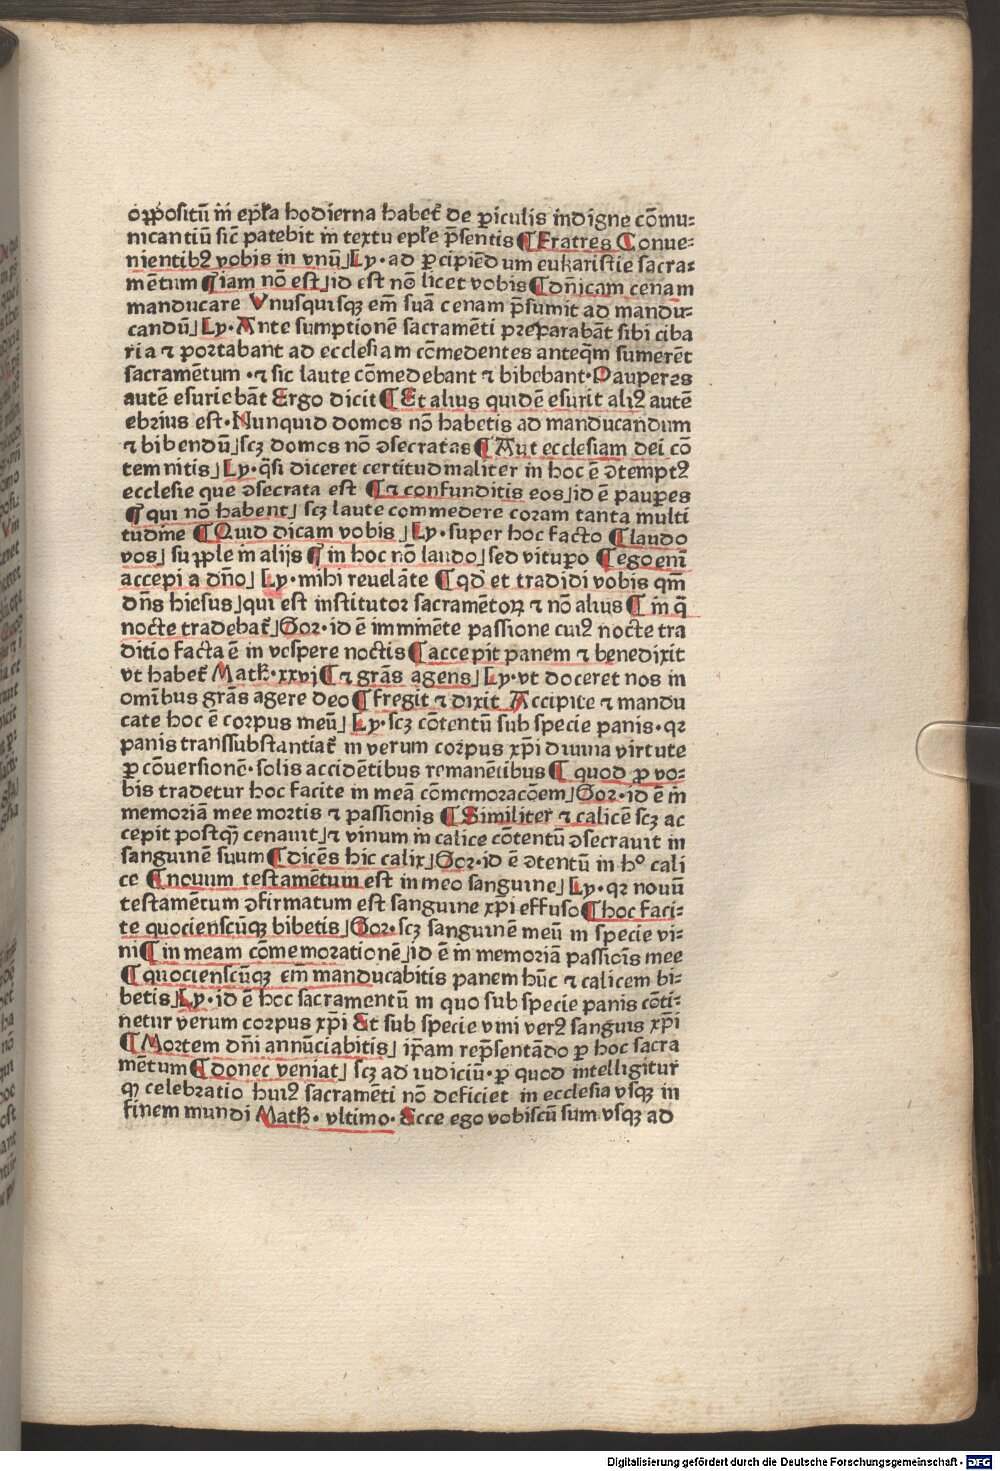 oꝓpositū in ep̄ła hodierna habet᷑ de ꝑiculis indigne cōmu⸗
nicantiū sic̄ patebit in textu ep̄łe p̄sentis ¶ Fratres Conue⸗
nientibꝰ vobis in vnū⌋ Ly· ad ꝑcipiēd um eukaristie sacra⸗
mētum ¶ iam nō est⌋ id est nō licet vobis ¶ dn̄icam cenam
manducare Vnusquisqꝫ em̄ suā cenam p̄sumit ad mandu⸗
candū⌋ Ly· Ante sumptionē sacramēti preparabāt sibi ciba
ria ⁊ portabant ad ecclesiam cōmedentes anteqm̄ sumerēt
sacramētum · ⁊ sic laute cōmedebant ⁊ bibebant· Pauperes
autē esuriebāt Ergo dicit ¶ Et alius quidē esurit aliꝰ autē
ebrius est· Nunquid domos nō habetis ad manducandum
⁊ bibendū⌋ scꝫ domos nō ꝯsecratas ¶ Aut ecclesiam dei cō
temnitis⌋ Ly· q̄si diceret certitudinaliter in hoc ē ꝯtemptꝰ
ecclesie que ꝯsecrata est ¶ ⁊ confunditis eos⌋ id ē pauꝑes
¶ qui nō habent⌋ scꝫ laute commedere coram tanta multi
tudine ¶ Quid dicam vobis ⌋ Ly· super hoc facto ¶ laudo
vos⌋ supple in alijs ¶ in hoc nō laudo⌋ sed vituꝑo ¶ ego enī
accepi a dn̄o⌋ Ly· mihi reuelāte ¶ qd̄ et tradidi vobis qm̄
dn̄s hiesus⌋ qui est institutor sacramētoꝝ ⁊ nō alius ¶ in q̄
nocte tradebat᷑⌋ Gor· id ē imminēte passione cuiꝰ nocte tra
ditio facta ē in vespere noctis ¶ accepit panem ⁊ benedixit
vt habet᷑ Math̄· xxvj ¶ ⁊ grās agens⌋ Ly· vt doceret nos in
omībus grās agere deo ¶ fregit ⁊ dixit Accipite ⁊ mandu
cate hoc ē corpus meū⌋ Ly· scꝫ cōtentū sub specie panis· qꝛ
panis transsubstantiat᷑ in verum corpus xp̄i diuina virtute
ꝑ cōuersionē· solis accidētibus remanētibus ¶ quod ꝓ vo⸗
bis tradetur hoc facite in meā cōmemoracōem⌋ Gor· id ē in
memoriā mee mortis ⁊ passionis ¶ Similiter ⁊ calicē scꝫ ac
cepit postqm̄ cenauit⌋ ⁊ vinum in calice cōtentū ꝯsecrauit in
sanguinē suum ¶ dicēs hic calix⌋ Gor· id ē ꝯtentū in hͦ cali
ce ¶ nouum testamētum est in meo sanguine⌋ Ly· qꝛ nouū
testamētum ꝯfirmatum est sanguine xp̄i effuso ¶ hoc faci⸗
te quociensc̄ūqꝫ bibetis⌋ Gor· scꝫ sanguinē meū in specie vi⸗
ni ¶ in meam cōmemorationē⌋ id ē in memoriā passiōis mee
¶ quociensc̄ūqꝫ em̄ manducabitis panem hūc ⁊ calicem bi⸗
betis⌋ Ly· id ē hoc sacramentū in quo sub specie panis cōti⸗
netur verum corpus xp̄i Et sub specie vini verꝰ sanguis xp̄i
¶ Mortem dn̄i annūciabitis⌋ ip̄am rep̄sentādo ꝑ hoc sacra
mētum ¶ donec veniat⌋ scꝫ ad iudiciū· ꝑ quod intelligitur᷑
qꝫ celebratio huiꝰ sacramēti nō deficiet in ecclesia vsqꝫ in
finem mundi Math̄· vltimo· Ecce ego vobiscū sum vsqꝫ ad
Digitalisierung gefördert durch die Deutsche Forschungsgemeinschaft - DFG